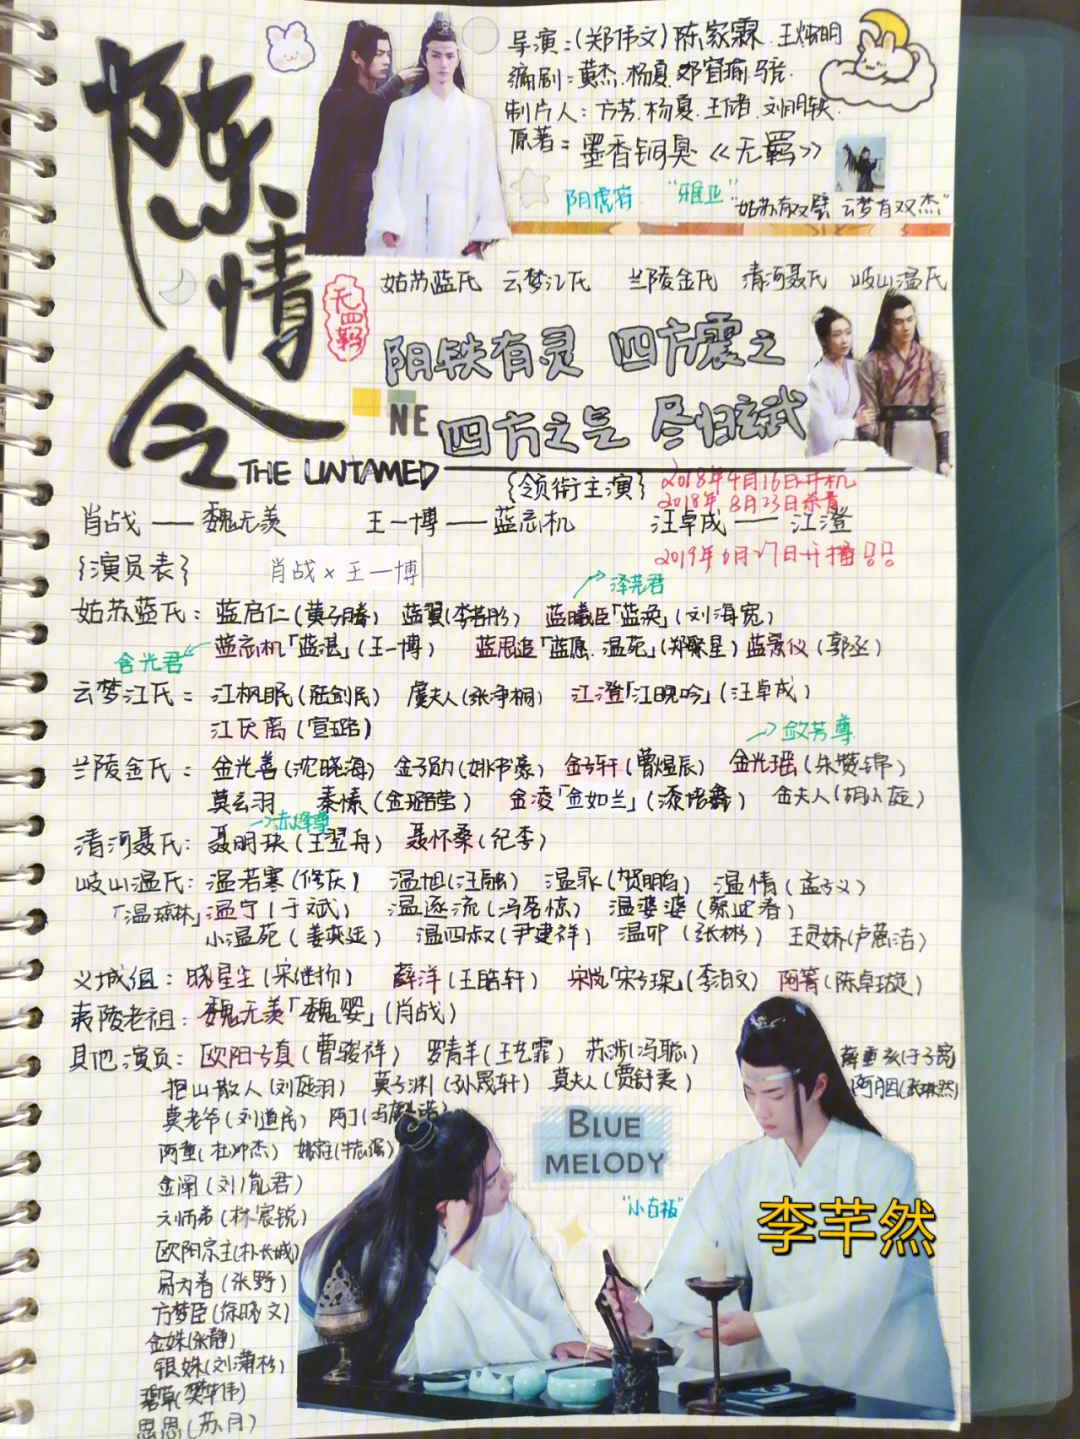 陈情令
THE UNTAMED
导演：(郑伟文) 陈家霖. 王炜明
编剧：黄杰. 杨夏. 邓官瑜. 马
制片人：方芳. 杨夏. 王
原著：墨香铜臭《无羁》
阴虎符 "雅正" "姑苏有双璧 云梦有双杰"
姑苏蓝氏 云梦江氏 兰陵金氏 清河聂氏 岐山温氏
无羁
阴铁有灵 四方震之
NE
四方之气 尽归玄武
{领衔主演}
2018年4月16日开机
2018年8月23日杀青
肖战——魏无羡 王一博——蓝忘机 汪卓成——江澄
2019年6月27日开播
{演员表} 肖战×王一博
泽芜君
姑苏蓝氏：蓝启仁(黄子腾) 蓝翼(李若彤) 蓝曦臣「蓝涣」(刘海宽)
含光君
蓝忘机「蓝湛」(王一博) 蓝思追「蓝愿.温苑」(郑繁星) 蓝景仪(郭丞)
云梦江氏：江枫眠(陆剑民) 虞夫人(张净桐) 江澄「江晚吟」(汪卓成)
江厌离(宣璐)
敛芳尊
兰陵金氏：金光善(沈晓海) 金子勋(姚书豪) 金子轩(曹煜辰) 金光瑶(朱赞锦)
莫玄羽 秦愫(金璐莹) 金凌「金如兰」(漆培鑫) 金夫人(胡小庭)
赤烽尊
清河聂氏：聂明玦(王翌舟) 聂怀桑(纪李)
岐山温氏：温若寒(修庆) 温旭(汪融) 温晁(贺鹏) 温情(孟子义)
「温琼林」温宁(于斌) 温逐流(冯茗惊) 温婆婆(蔡迎春)
小温苑(姜奕延) 温四叔(尹建祥) 温卯(张彬) 王灵娇(卢葱洁)
义城组：晓星尘(宋继扬) 薛洋(王皓轩) 宋岚「宋子琛」(李泊文) 阿箐(陈卓璇)
夷陵老祖：魏无羡「魏婴」(肖战)
其他演员：欧阳子真(曹骏祥) 罗青羊(王艺霏) 苏涉(冯聪)
薛重亥(于子宽)
抱山散人(刘庭羽) 莫子渊(孙晟轩) 莫夫人(贾舒麦)
阿胭
莫老爷(刘道民) 阿丁
阿童(杜冲杰)
金阐(刘胤君)
六师弟(林宸锐)
欧阳宗主(朴长城)
易为春(张野)
方梦臣(徐晓文)
金姝(张静)
银姝(刘潇杉)
碧草(樊华伟)
思思(苏月)
BLUE
MELODY
"小古板"
李芊然